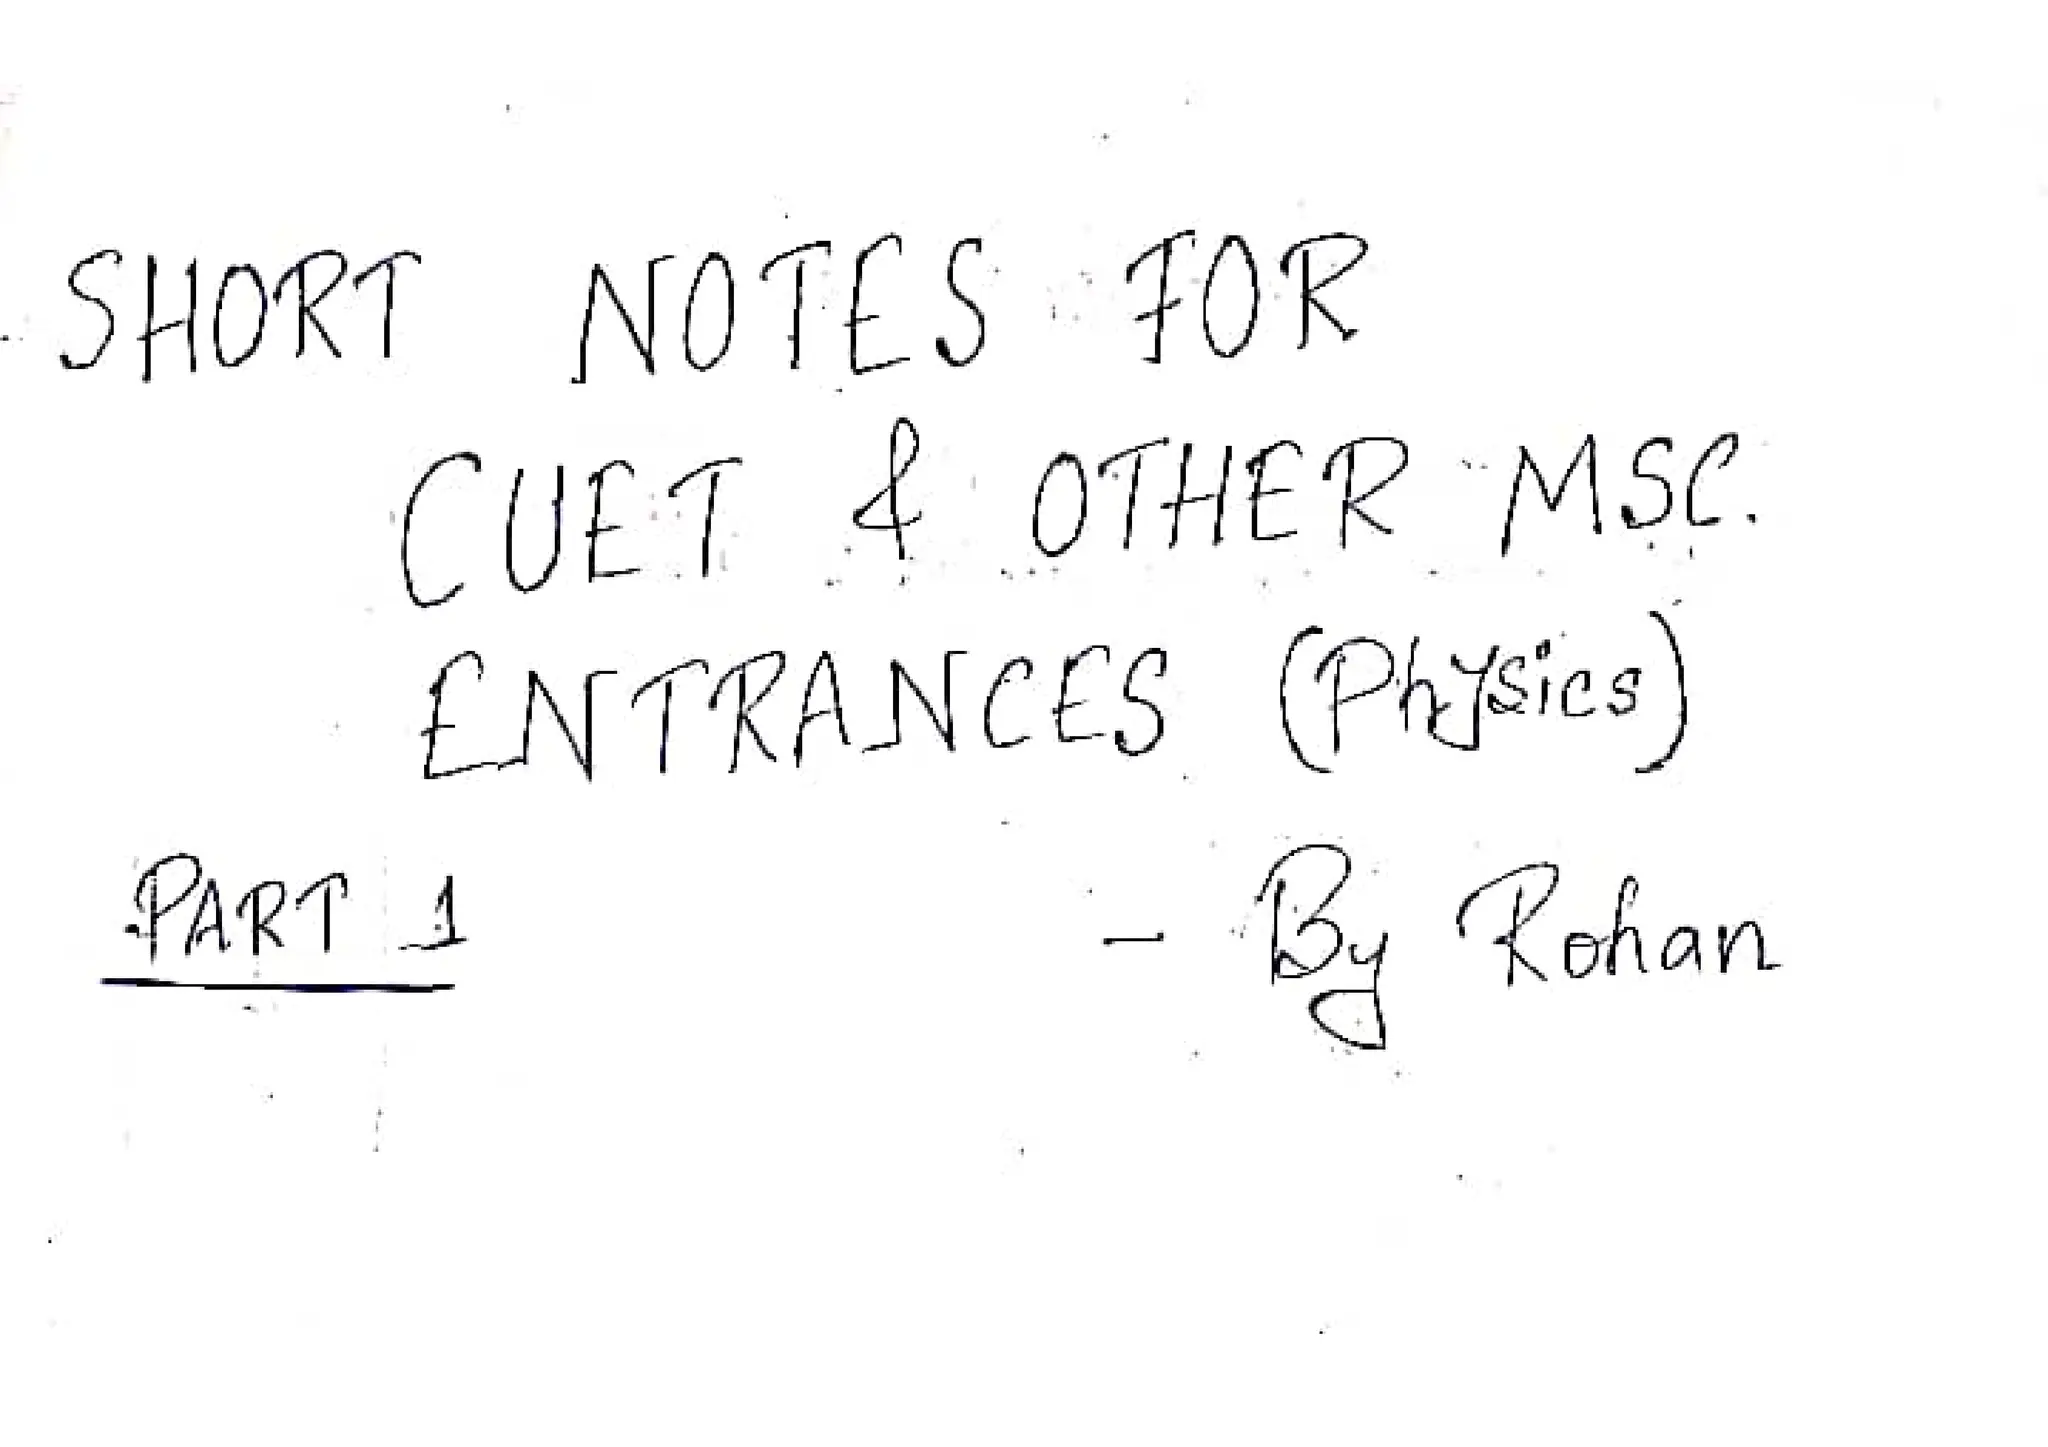 SHORT NOTES FOR
CUET & OTHER MSC.
ENTRANCES (Physics)
PART 1 - By Rohan